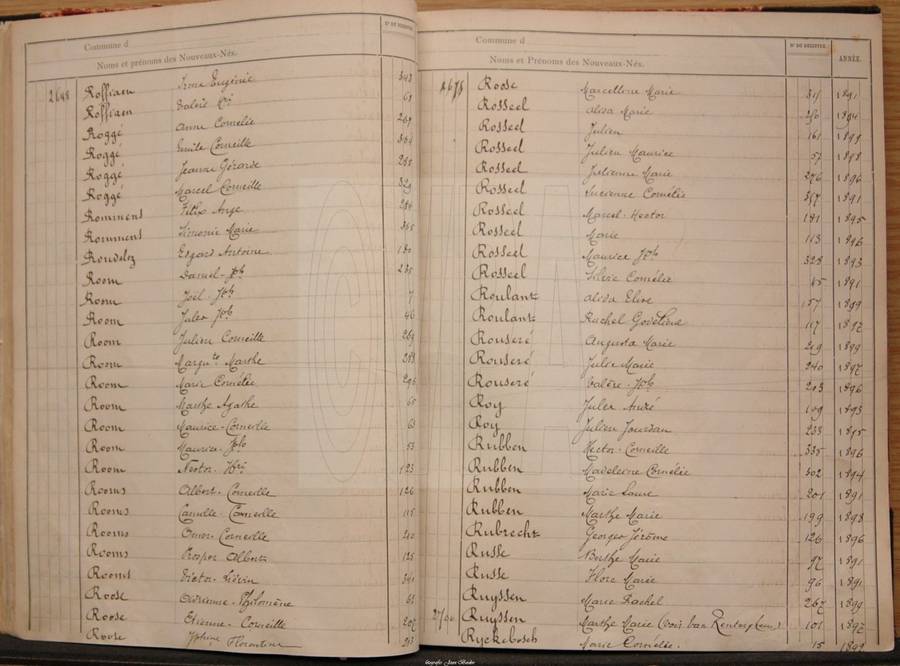 N° DU REGISTRE
Commune d
Noms et prénoms des Nouveaux-Nés.
2648 Roffiaen Irma Eugénie 343
Roffiaen Valrie 61
Roggé Anne Cornélie 267
Roggé Emile Corneille
Roggé Jeanne Gérarde
Roggé Marcel Corneille 329
Rommens Félix Ange
Rommens Simonie Marie 365
Rondelez Edgard Antoine 180
Room Daniel Jph 235
Room Joël Jph 7
Room Jules Jph 46
Room Julien Corneille 269
Room Margu.te Marthe 289
Room Marie Cornélie 296
Room Marthe Agathe 65
Room Maurice Corneille 63
Room Maurice Jph 53
Room Nestor Hri 123
Rooms Albert Corneille 126
Rooms Camille Corneille 115
Rooms Omer Corneille 240
Rooms Prosper Albert 125
Rooms Victor Liévin 341
Roose Adrienne Philomène 61
Roose Etienne Corneille 202
Roose Florentine 213
Commune d
Noms et Prénoms des Nouveaux-Nés.
N° DU REGISTRE.
ANNÉE.
2675 Roose Marcelline Marie 311 1891
Rosseel Alida Marie 1894
Rosseel Julien 161 1899
Rosseel Julien Maurice 57 1898
Rosseel Julienne Marie 276 1896
Rosseel Lucienne Cornélie 367 1891
Rosseel Marcel Hector 141 1895
Rosseel Marie 113 1896
Rosseel Maurice Jph 328 1893
Rosseel Silvie Cornélie 45 1891
Roulant Alida Elise 157 1899
Roulant Rachel Godeliva 117 1892
Rouseré Augusta Marie 219 1899
Rouseré Julie Marie 240 1897
Rouseré Valère Jph 203 1896
Roy Jules André 109 1893
Roy Julien Jourdan 233 1895
Rubben Hector Corneille 335 1896
Rubben Madeleine Cornélie 302 1894
Rubben Marie Louise 201 1891
Rubben Marthe Marie 199 1898
Rubrecht Georges Jérôme 126 1896
Russe Berthe Marie 97 1891
Russe Flore Marie 96 1891
Ruyssen Marie Rachel 267 1899
2700 Ruyssen Marthe Marie (voir Van 101 1892
Ryckebosch Marie Cornélie. 15 1892